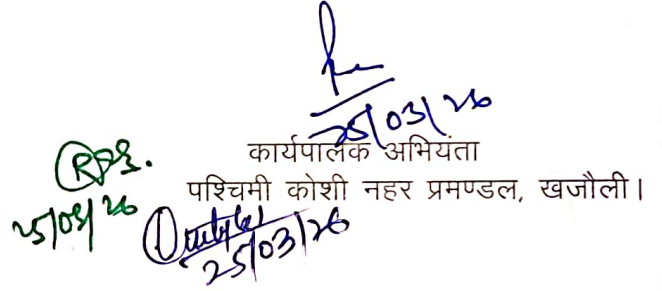 25/03/26
कार्यपालक अभियंता
पश्चिमी कोशी नहर प्रमण्डल, खजौली।
25/03/26
25/03/26